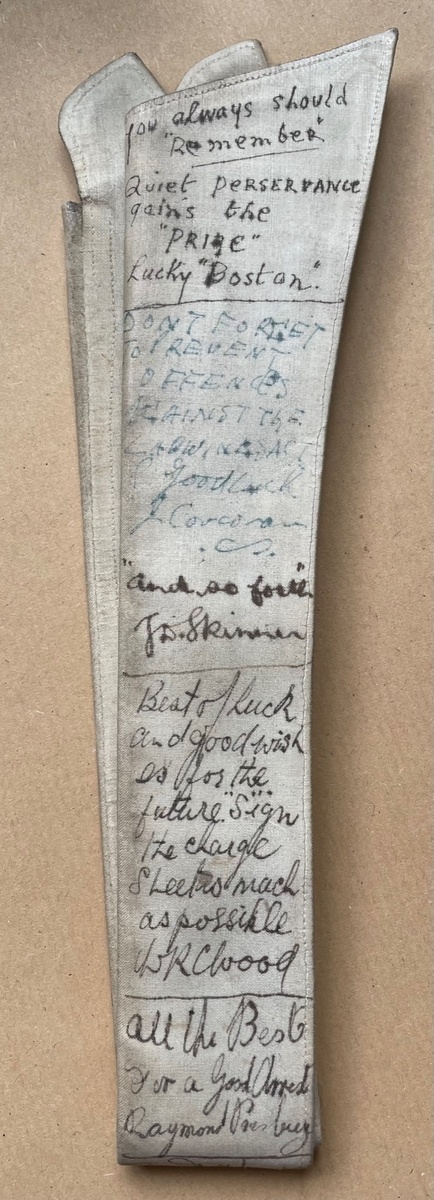 you always should
"Remember"
Quiet PERSERVANCE
gains the
"PRIZE"
Lucky "Boston".
DONT FORGET
TO PREVENT
OFFENCES
AGAINST THE
ACT
Good luck
J Corcoran
"and so forth"
J.D. Skinner
Best of luck
and good wish
es for the
future. "Sign
the charge
Sheet as much
as possible
All the Best
For a Good Arrest
Raymond